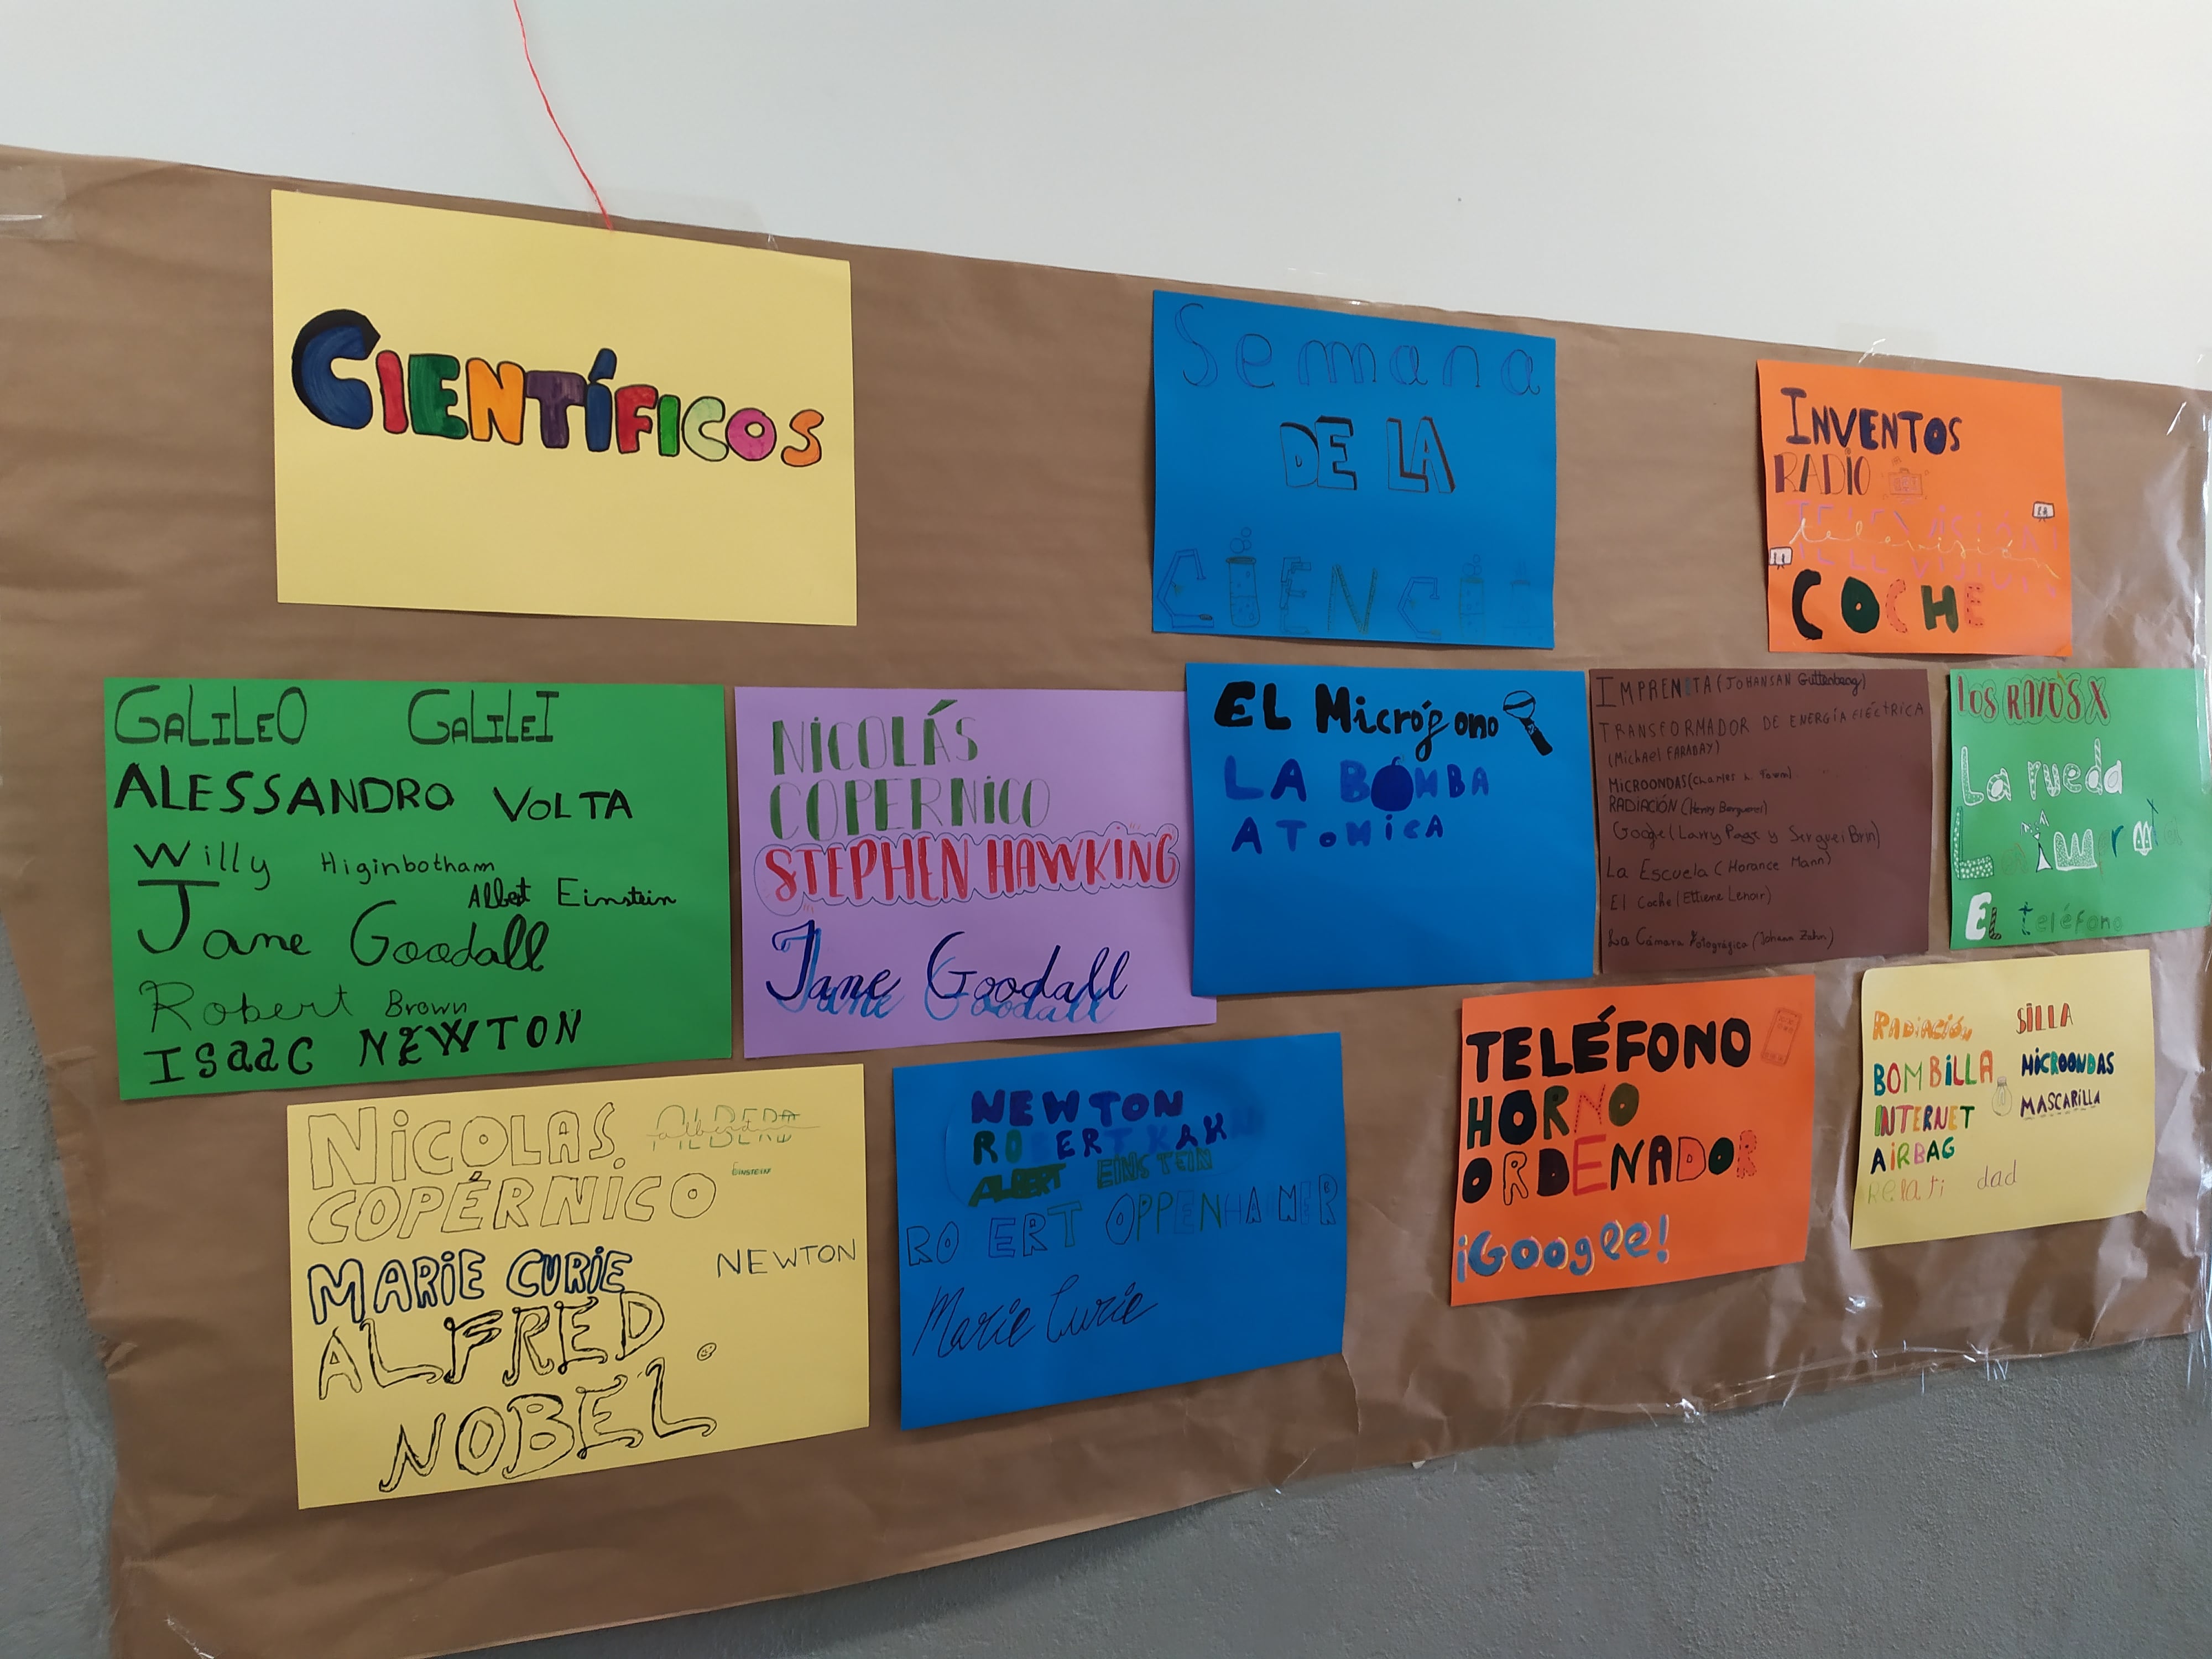 CIENTÍFICOS
Semana
DE LA
CIENCIA
INVENTOS
RADIO
televisión
COCHE
GALILEO GALILEI
ALESSANDRO VOLTA
Willy Higinbotham
Albet Einstein
Jane Goodall
Robert Brown
ISaaC NEWTON
NICOLÁS
COPERNICO
STEPHEN HAWKING
Jane Goodall
EL Micrófono
LA BOMBA
ATOMICA
IMPRENTA (JOHANSAN Guttenberg)
TRANSFORMADOR DE ENERGÍA ELÉCTRICA
(Michael FARADAY)
MICROONDAS (Charles L.
RADIACIÓN (Henry
Google (Larry Page y Serguei Brin)
La Escuela (Horance Mann)
El Coche (Ettiene Lenoir)
La Cámara Fotográfica (Johann Zahn)
LOS RAYOS X
La rueda
EL teléfono
NICOLAS
COPÉRNICO
EINSTEIN
MARIE CURIE
NEWTON
ALFRED
NOBEL
NEWTON
ROBERT
ALBERT EINSTEIN
ROBERT OPPENHAIMER
Marie Curie
TELÉFONO
HORNO
ORDENADOR
¡Google!
RADIACIÓN SILLA
BOMBILLA MICROONDAS
INTERNET MASCARILLA
AIRBAG